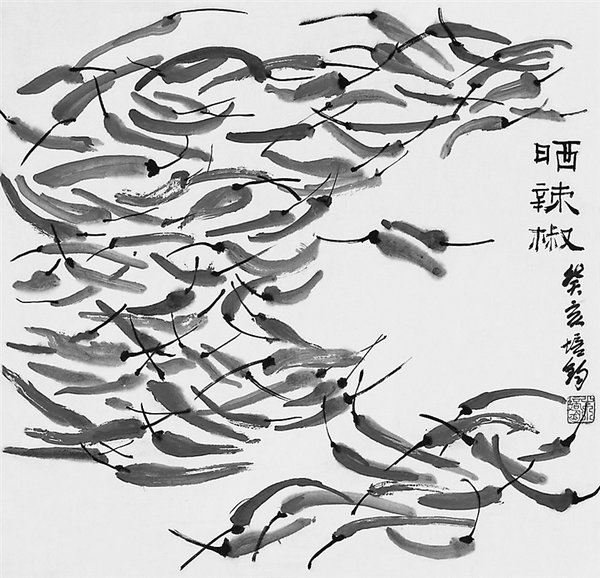 晒辣椒
癸亥培钧